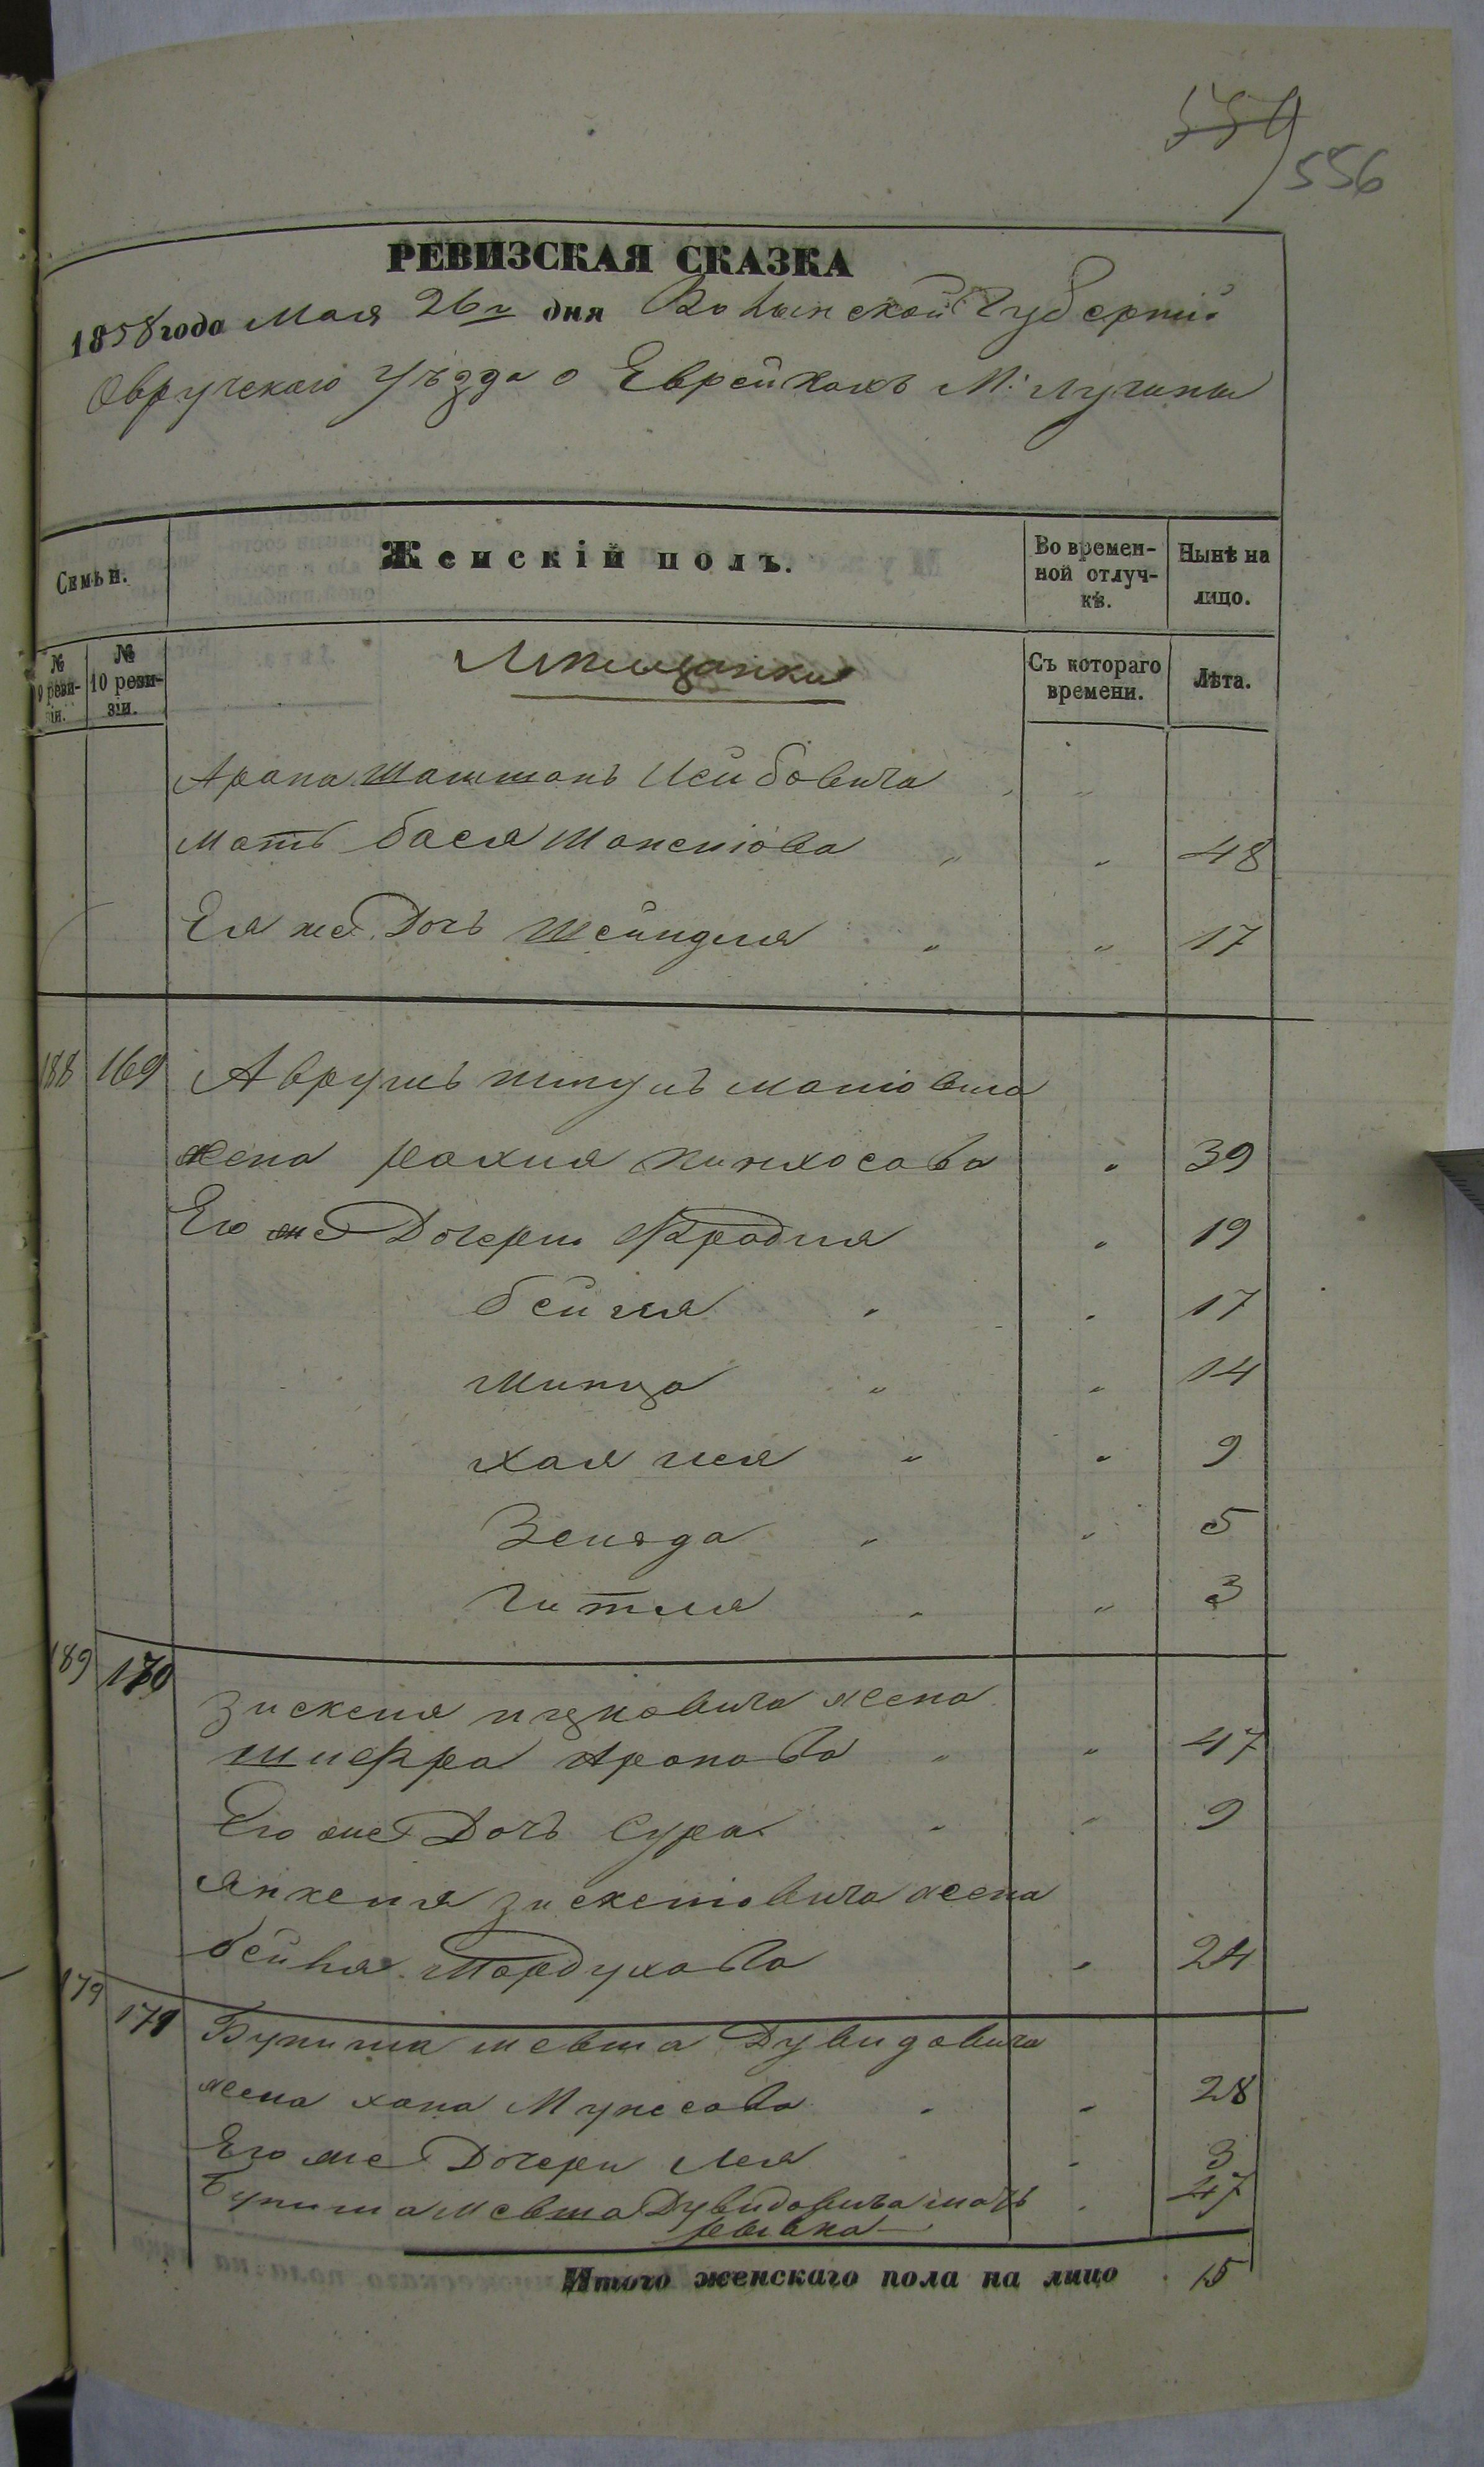 554
556
РЕВИЗСКАЯ СКАЗКА
1858 года Мая 26го дня Волынской Губерніи
Овручскаго Уѣзда о Еврейкахъ М: Лугины
Семьи.
Женскій полъ.
Во времен-
ной отлуч-
кѣ.
Нынѣ на
лицо.
№ 9 реви-
зіи.
№ 10 реви-
зіи.
Мѣщанки
Съ котораго
времени.
Лѣта.
Арона Лейбовича
мать бася 48
Ея же Дочь Шейндля 17
188 169 Аврумъ
жена рахля пинхосова 39
Его же Дочери Фрадля 19
бейля 17
минца 14
хая лея 9
5
Гитля 3
189 170
зискеля ицковича жена
шифра Аронова 47
Его же Дочь Сура 9
Янкеля зискелiовича жена
бейля Мордухова 24
179 171 Бунима Дувидовича
жена хана 28
Его же Дочери Лея 3
Бунима Дувидовича мать 47
ривка
Итого женскаго пола на лицо 15